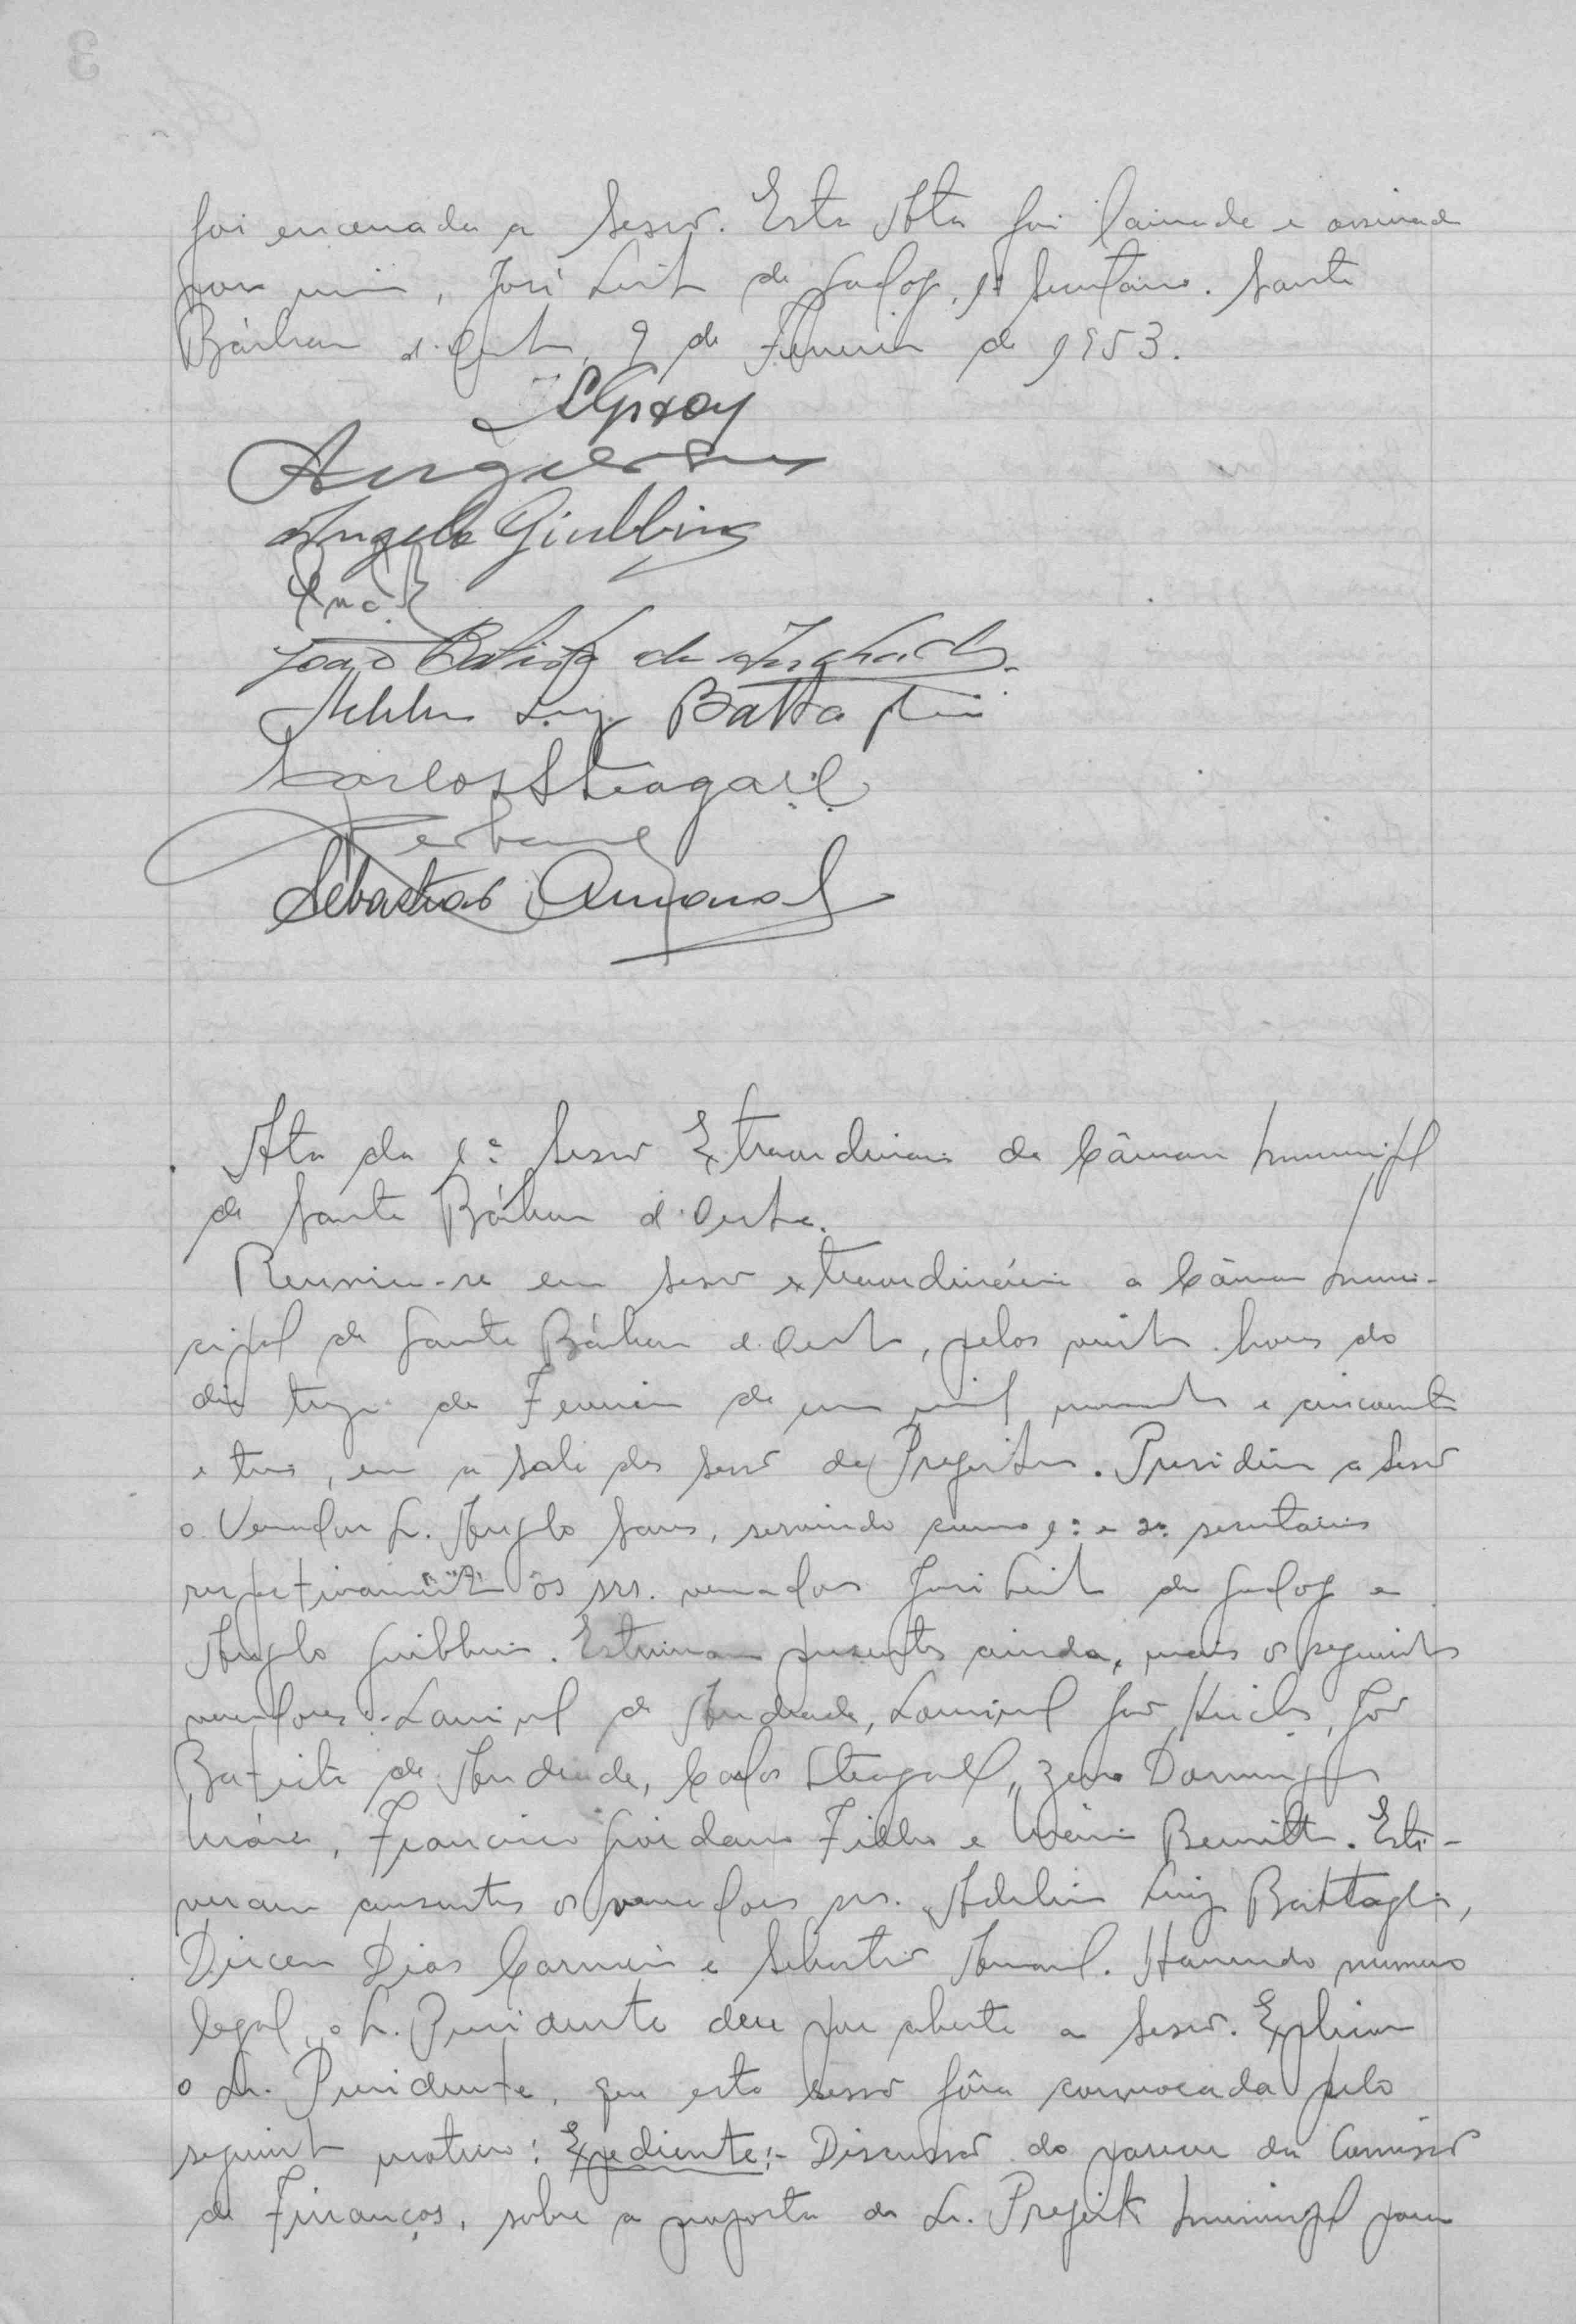 foi encerrada a Sessão. Esta Ata foi lavrada e assinada
por mim, José Leite de Godoy, 1º Secretário. Santa
Bárbara d'Oeste, 9 de Fevereiro de 1953.
Angelo Sans
Angelo Giubbina
João Batista de Andrade
Adelino Luiz Battaglia
Carlos Steagall
Sebastião Amaral
Ata da 1ª Sessão Extraordinaria da Câmara Municipal
de Santa Bárbara d'Oeste.
Reuniu-se em sessão extraordinária a Câmara Muni-
cipal de Santa Bárbara d'Oeste, pelas vinte horas do
dia treze de Fevereiro de um mil novecentos e cincoenta
e tres, em a sala das sessões da Prefeitura. Presidiu a Sessão
o Vereador Sr. Angelo Sans, servindo como 1º e 2º secretarios
respectivamente os srs. vereadores José Leite de Godoy e
Angelo Giubbina. Estiveram presentes ainda, mais os seguintes
vereadores:- Lourival de Andrade, Lourival João, João
Batista de Andrade, Carlos Steagall, Zeno Domingues
Maia, Francisco Giordano Filho e Benitto. Esti-
veram ausentes os vereadores srs. Adelino Luiz Battaglia,
Dirceu Dias Carneiro e Sebastião Amaral. Havendo numero
legal, o Sr. Presidente deu por aberta a Sessão. Explicou
o Sr. Presidente, que esta sessão fôra convocada pelo
seguinte motivo: Expediente:- Discussão do parecer da Comissão
de Finanças, sobre a proposta do Sr. Prefeito Municipal para